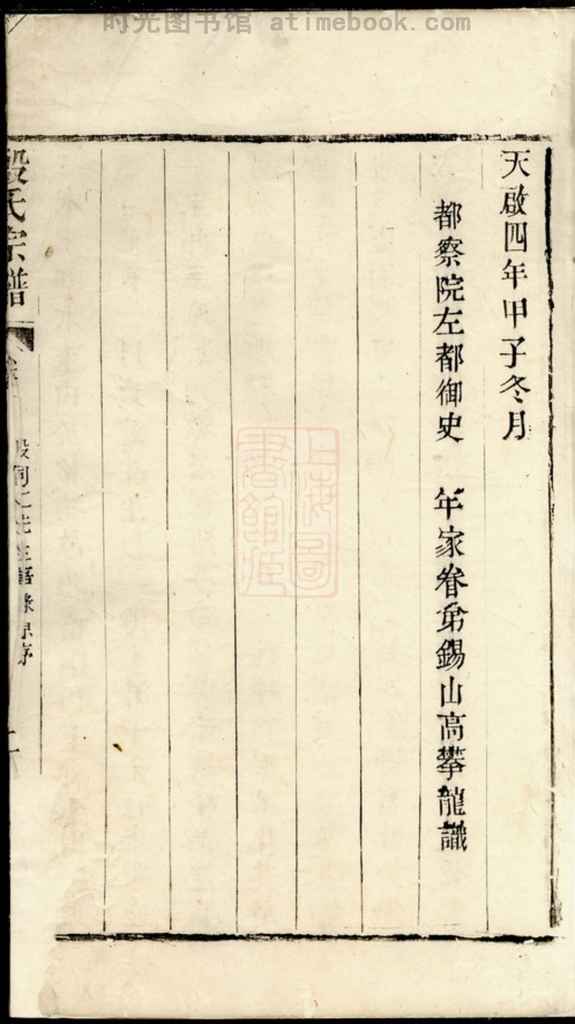 时光图书馆 atimebook.com
天啟四年甲子冬月
都察院左都御史 年家眷弟錫山高攀龍識
氏宗譜
同仁先生語錄原序
二
上海圖書館藏